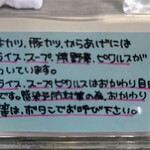 カツ、豚カツ、からあげには
ライス、スープ、焼野菜、ピクルスが
ついています。
ライス、スープ、ピクルスはおかわり自由
です。感染予防対策の為、おかわり
は、ボタンでお呼び下さい。